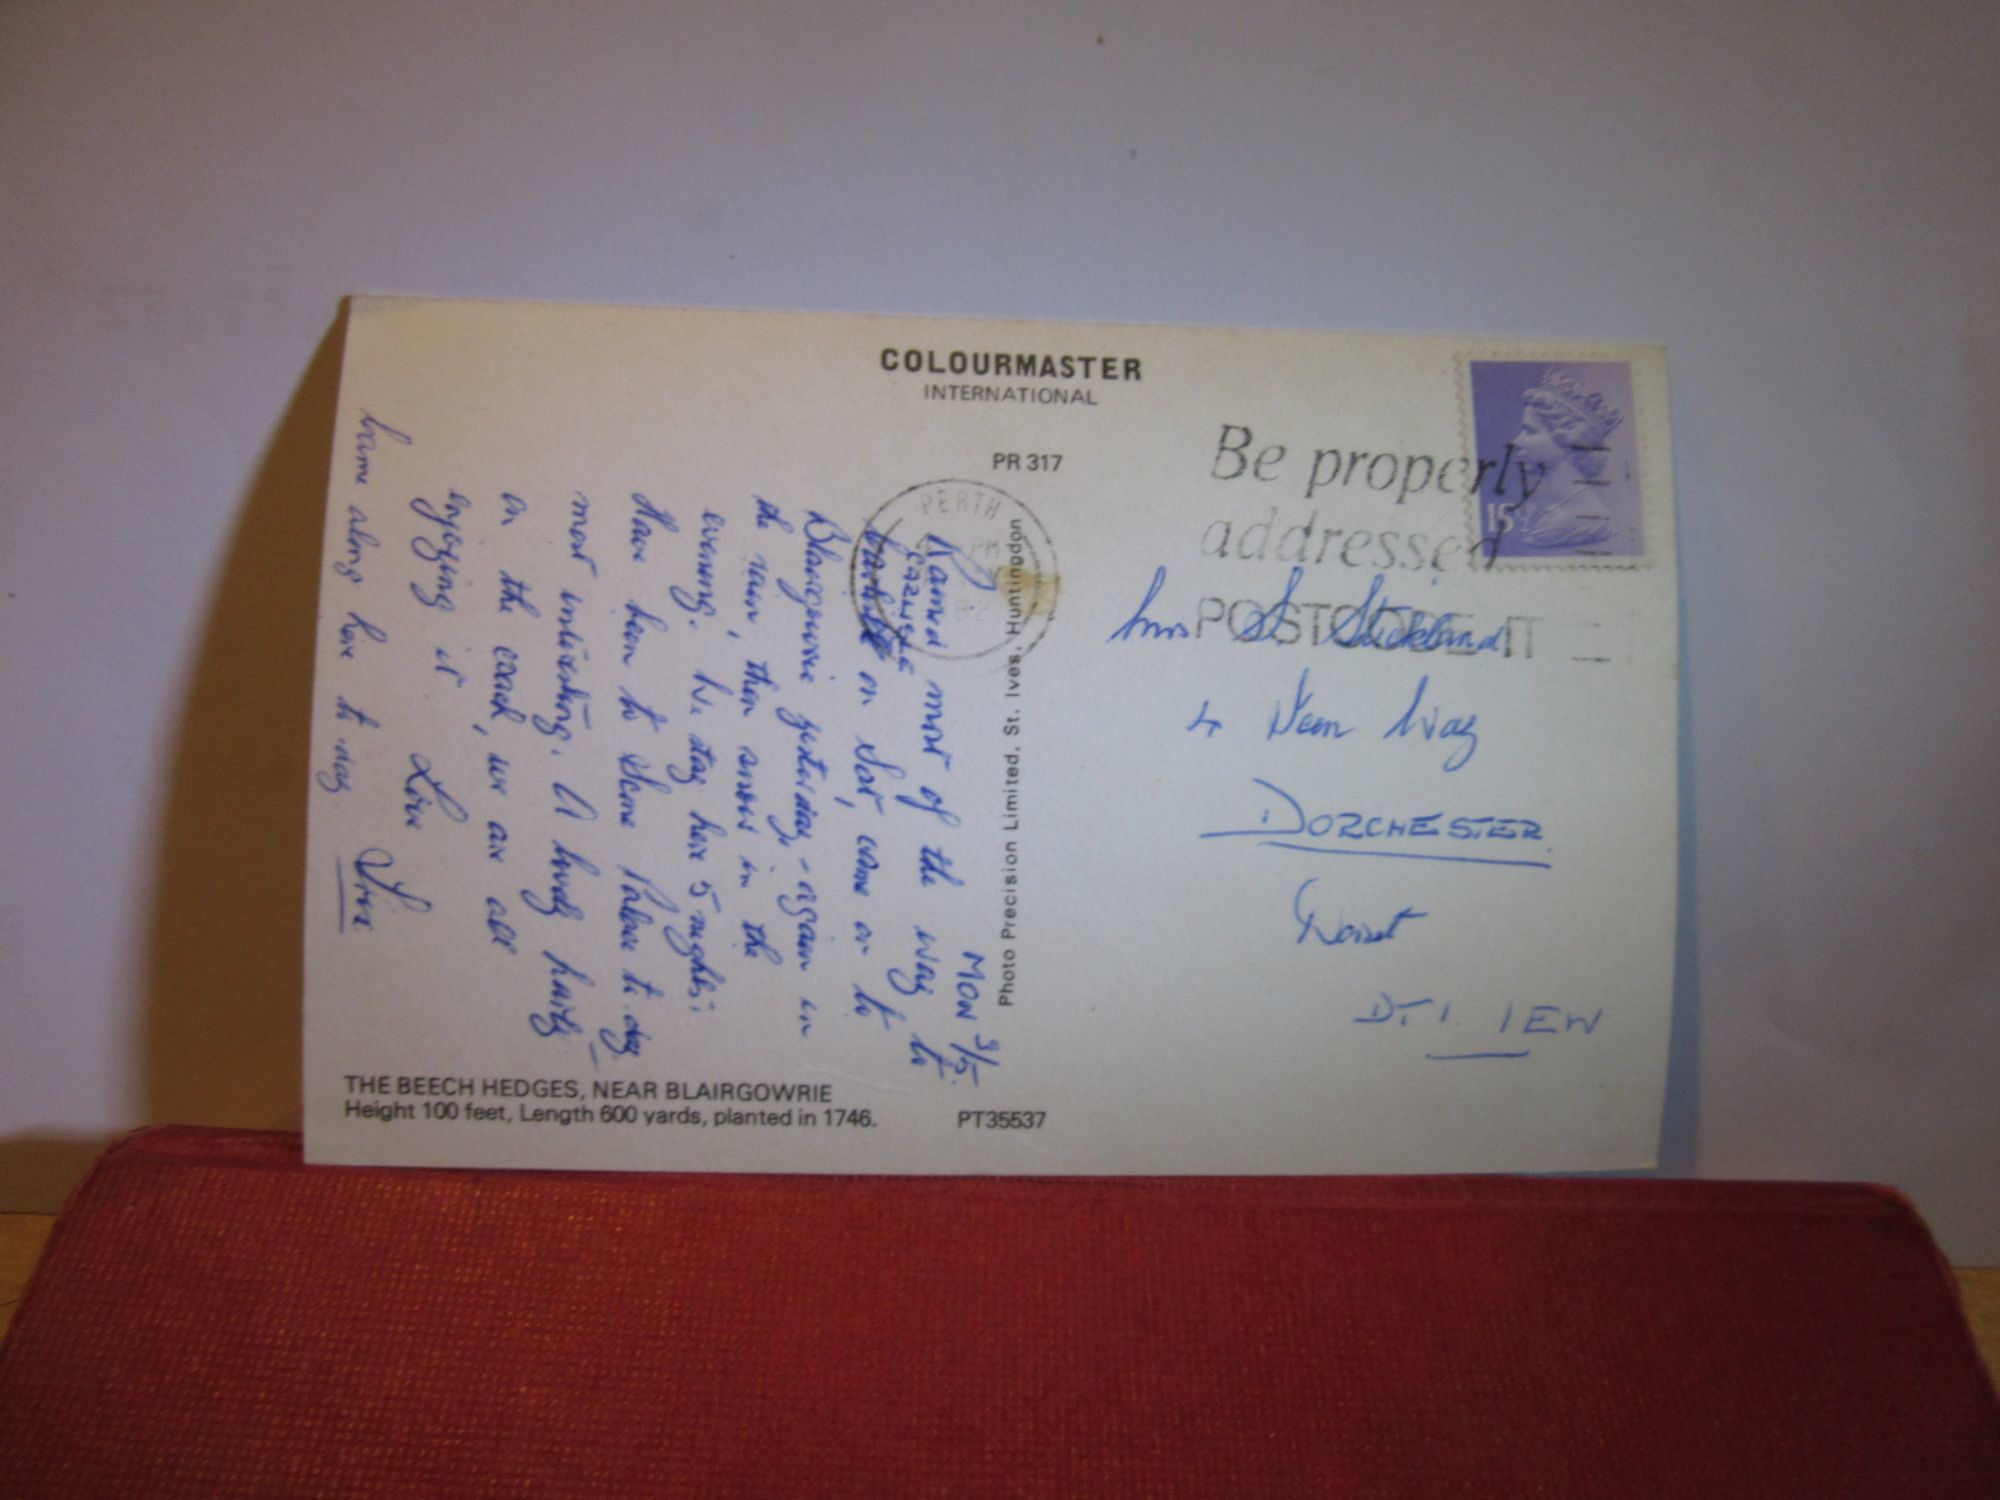 COLOURMASTER
INTERNATIONAL
PR 317
PERTH
PM
82
Be properly
addressed
POSTCODE IT
15
MON 3/5.
Rained most of the way to
CARLISLE
Carlisle on Sat, came on to
Blairgowrie yesterday, - again in
the rain, then snow in the
evening. We stay here 5 nights;
Have been to Scone Palace to-day
most interesting. A lovely party
on the coach, we are all
enjoying it. Love
came along here to-day.
Mrs S. Stickland
4 Way
DORCHESTER
Dorset
DT1 1EW
Photo Precision Limited, St. Ives, Huntingdon
THE BEECH HEDGES, NEAR BLAIRGOWRIE
Height 100 feet, Length 600 yards, planted in 1746.
PT35537